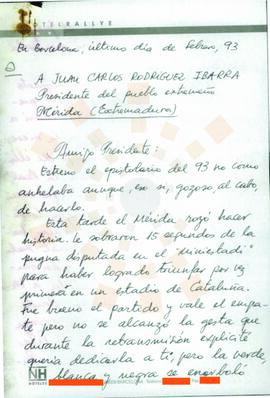 HOTEL RALLYE
En Barcelona, último día de febrero, 93
A JUAN CARLOS RODRIGUEZ IBARRA
Presidente del pueblo extremeño
Mérida (Extremadura)
Amigo Presidente:
Estreno el epistolario del 93 no como
anhelaba aunque, eso sí, gozoso al cabo,
de hacerlo.
Esta tarde el Mérida rozó hacer
historia. le sobraron 15 segundos de la
pugna disputada en el "miniestadi"
para haber logrado triunfar por vez
primera en un estadio de Cataluña.
Fue bueno el partido y vale el empa-
te pero no se alcanzó la gesta que
durante la retransmisión explicité
quería dedicarla a ti, pero la verde,
blanca y negra se enarboló
NH
HOTELES
BARCELONA Teléfono
Fax